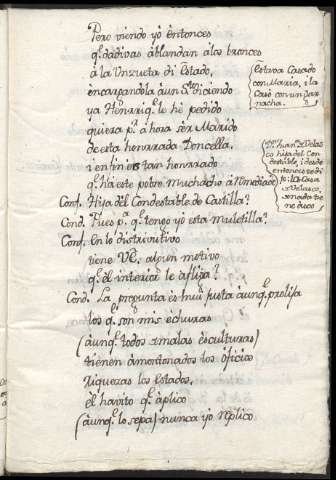 Pero viendo yo entonces
q.e dadivas ablandan a los bronces
à la Unzueta di Estado,
encarpandola àun a
diciendo
ya Honrriq.e le he pedido
quiera p.a ahora sèr Marido
de esta honrrada Doncella,
i en fin es tan honrrado
q.e ha este pobre Muchacho à Remediado
Conf. Hija del Condestable de Castilla?
Cond. Pues p.a q.e tengo yo esta muletilla?
Conf. En lo distributivo
tiene V.E. algun motivo
q.e el interior le afliga?
Cond. La pregunta es mui justa àunq.e prolija
los q.e son mis echuras
(àunq.e todos smalas esculturas)
tienen amontonados los oficios
riquezas los estados,
el havito q.e àplico
(àunq.e lo sepa) nunca yo replico
Estava Casado
con Maria, i la
Casò con un Gar
nacha.
D.n Juan de Velas
co hijo del Con
destable, i desde
entonces se di
jo: La Casa
de Velasco,